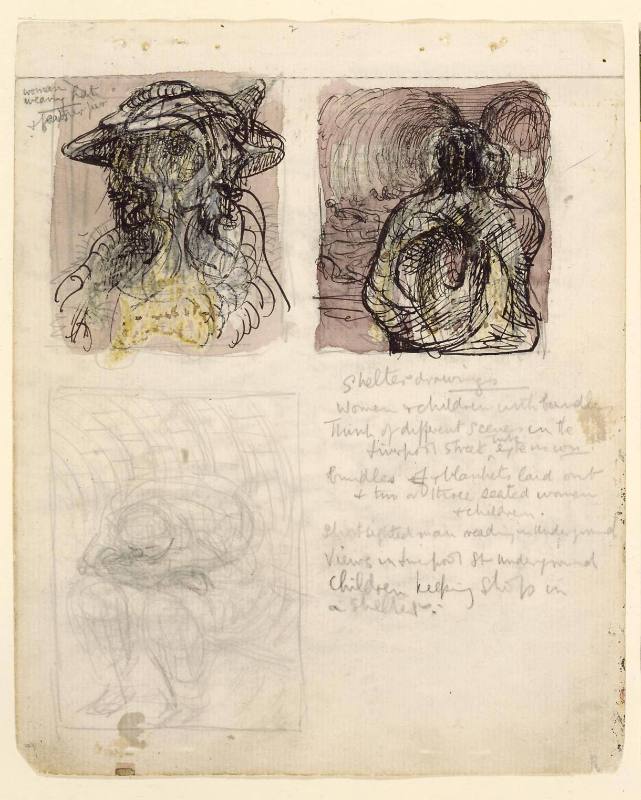 woman
wearing hat
+ feather fur
Shelter drawings
Women & children with bundles
Think of different scenes in the
Liverpool Street tube extension
bundles & blankets laid out
+ two or three seated women
+ children.
Shortsighted man reading in Underground
Views in Liverpool St underground
Children keeping shop in
a shelter.